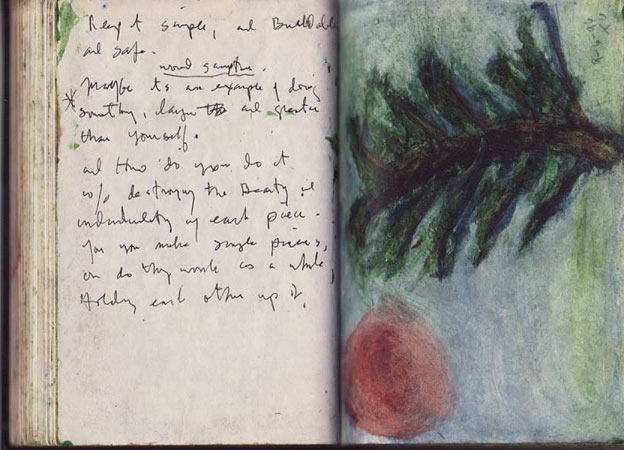 Keep it simple, and Buildable
and safe.
* Maybe its an example of doing
something, larger and greater
than yourself.
and How do you do it
w/o destroying the Beauty
individuality of each piece.
you make single pieces,
or do they work as a whole,
Holding each other up